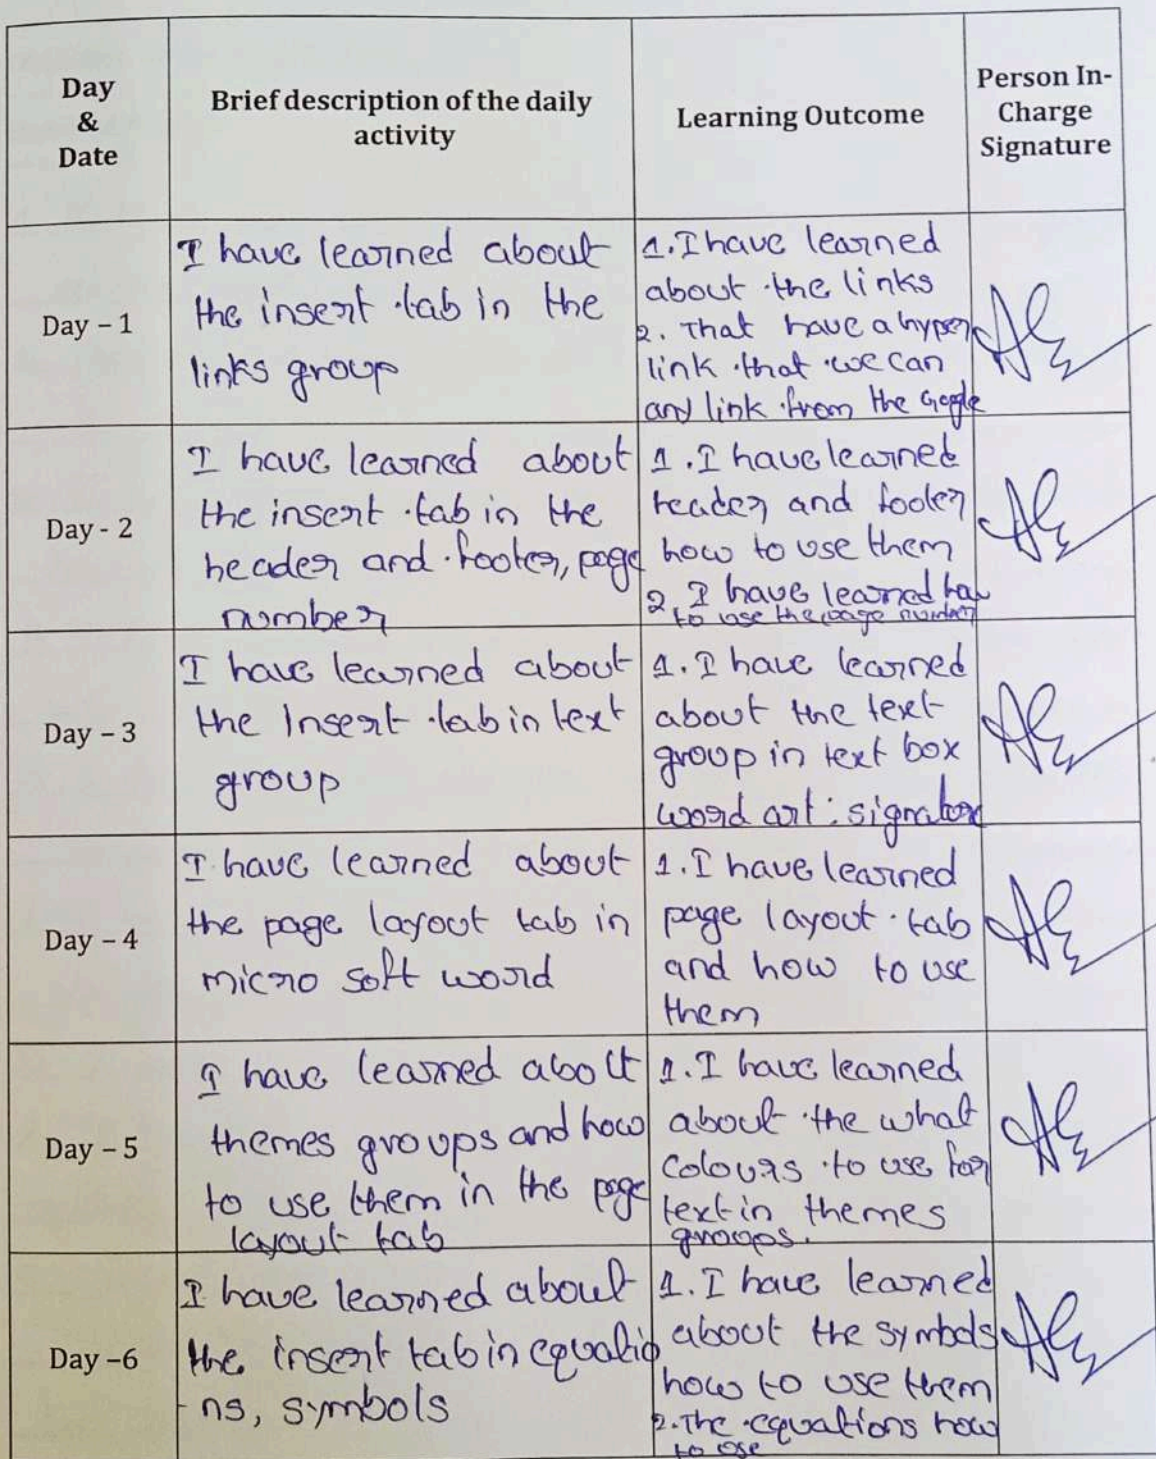 Day
&
Date
Brief description of the daily
activity
Learning Outcome
Person In-
Charge
Signature
Day – 1
I have learned about
the insert tab in the
links group
1. I have learned
about the links
2. That have a hyper
link that we can
and link from the Gogle
Day - 2
I have learned about
the insert tab in the
header and footer, page
number
1. I have learned
header and footer
how to use them
2. I have learned how
to use the page number
Day – 3
I have learned about
the Insert tab in text
group
1. I have learned
about the text
group in text box
word art: signature
Day – 4
I have learned about
the page layout tab in
micro soft word
1. I have learned
page layout tab
and how to use
them
Day – 5
I have learned about
themes groups and how
to use them in the page
layout tab
1. I have learned
about the what
colours to use for
text in themes
groups.
Day –6
I have learned about
the insert tab in equatio
- ns, symbols
1. I have learned
about the symbols
how to use them
2. The equations how
to use